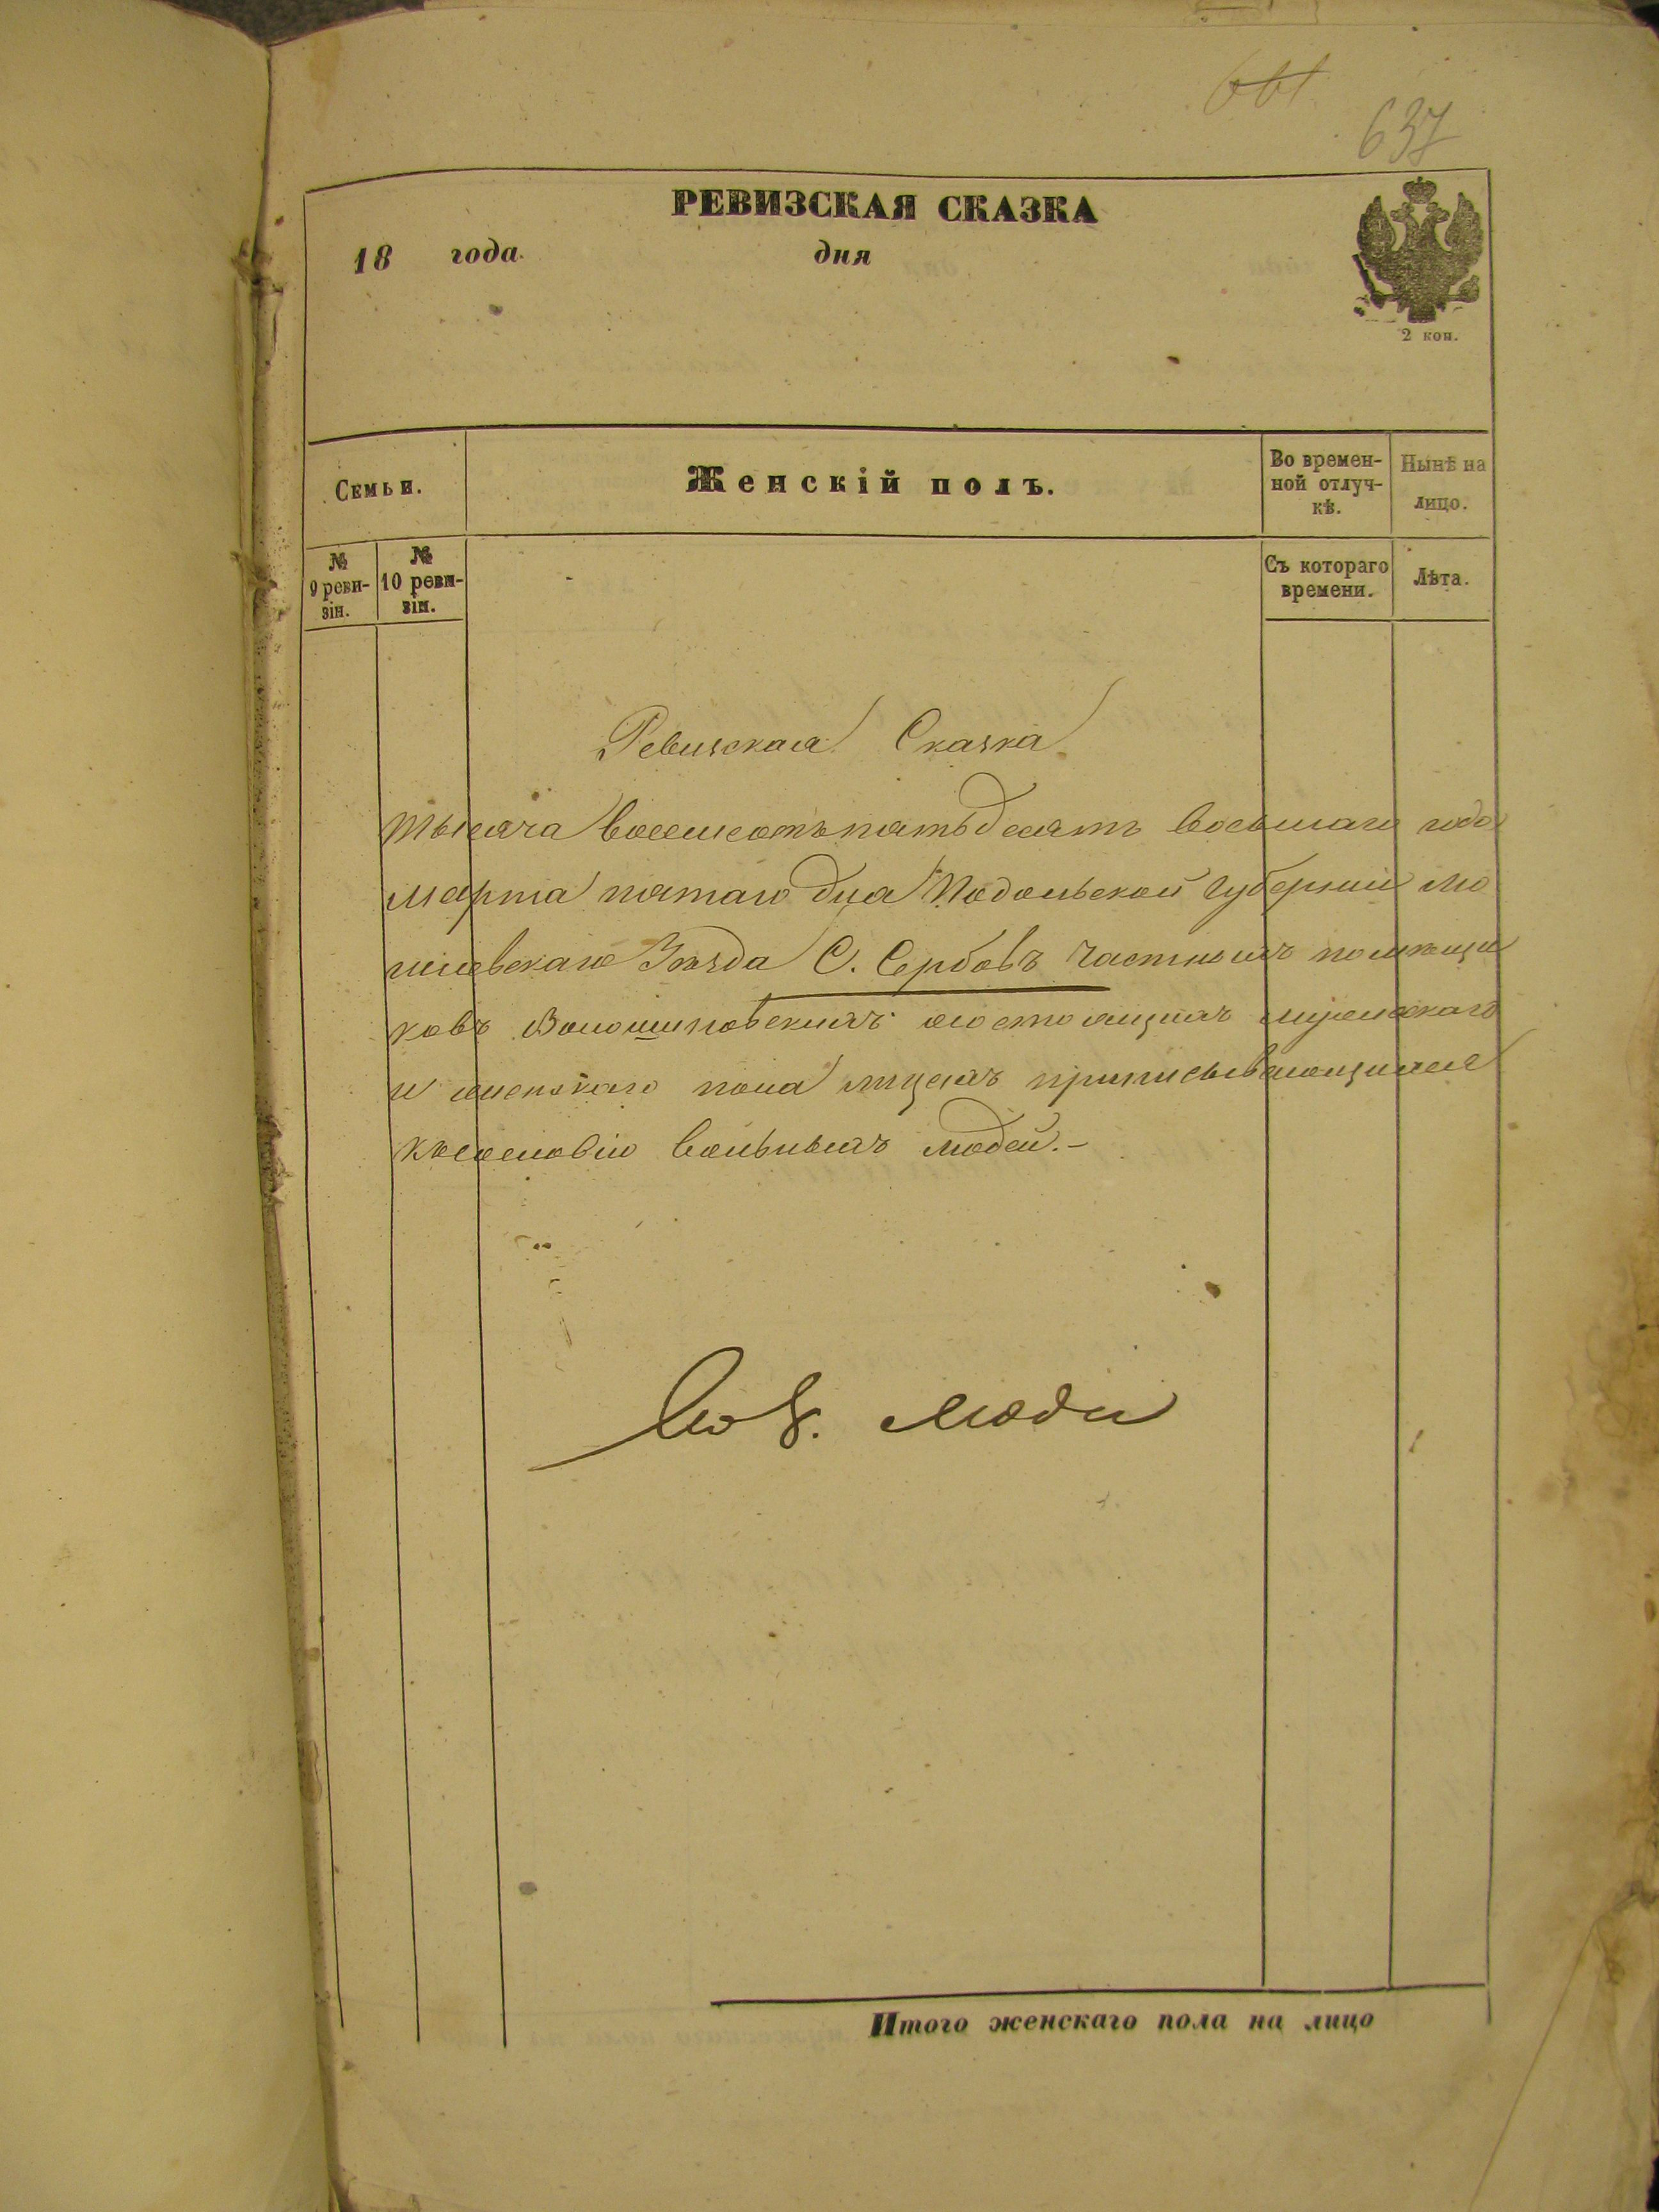 661
637
РЕВИЗСКАЯ СКАЗКА
18 года. дня
2 коп.
Семьи.
Женскій полъ.
Во времен-
ной отлуч-
кѣ.
Нынѣ на
лицо.
№
9 реви-
зіи.
№
10 реви-
зіи.
Съ котораго
времени.
Лѣта.
Ревизская Сказка
тысяча восемсотъ пятьдесятъ восьмаго года
марта пятаго дня Подольской Губерніи Мо
гилевскаго Уѣзда С. Сербовъ частныхъ помѣщи
ковъ Волошиновскихъ о состоящихъ мужескаго
и женскаго пола лицахъ приписывающихся
къ сословію вольныхъ людей.-
люди
Итого женскаго пола на лицо